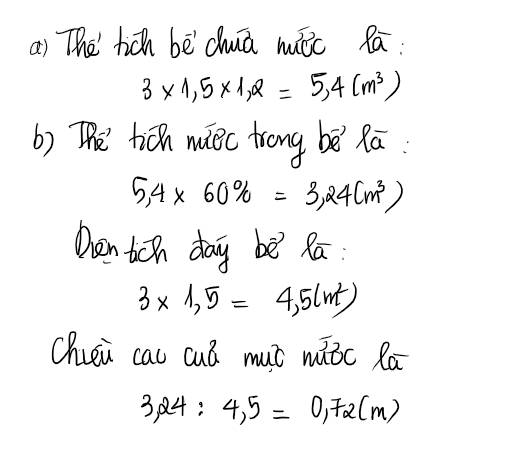 a) Thể tích bể chứa nước là :
3 x 1,5 x 1,2 = 5,4 (m³)
b) Thể tích nước trong bể là :
5,4 x 60% = 3,24 (m³)
Diện tích đáy bể là :
3 x 1,5 = 4,5 (m²)
Chiều cao của mực nước là
3,24 : 4,5 = 0,72 (m)